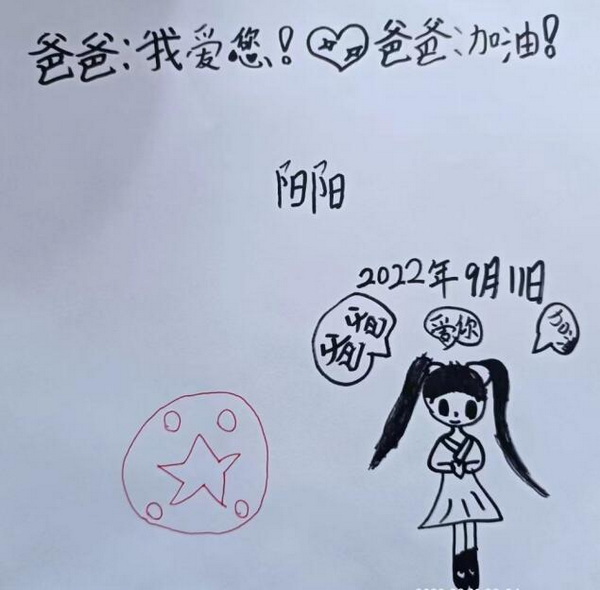 爸爸:我爱您!爸爸:加油!
阳阳
2022年9月11日
爱你
加油